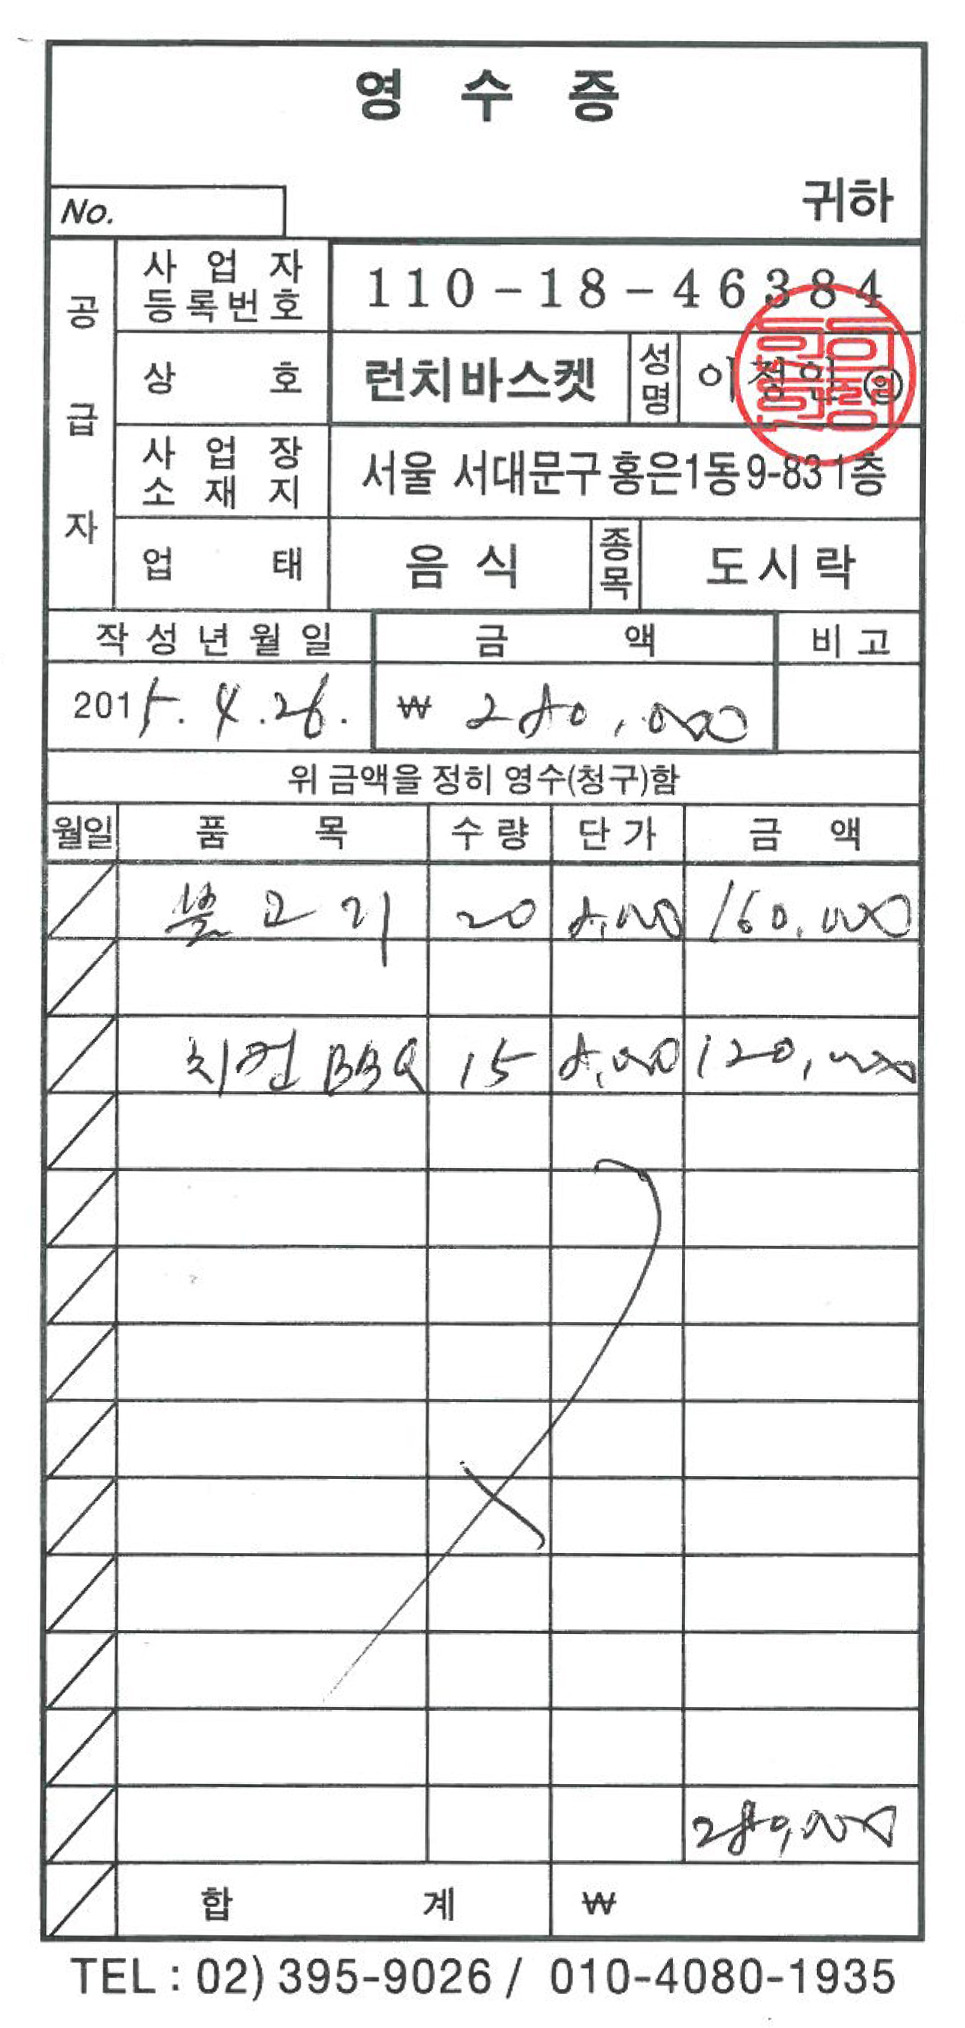 영 수 증
귀하
No.
공급자
사 업 자 등록번호 110-18-46384
상 호 런치바스켓 성명 이정인 ㊞
사 업 장 소 재 지 서울 서대문구 홍은1동 9-83 1층
업 태 음 식 종목 도시락
작 성 년 월 일 금 액 비 고
2015. 4. 26. ₩ 280,000
위 금액을 정히 영수(청구)함
월일 품 목 수 량 단 가 금 액
불고기 20 8,000 160,000
치킨 BBQ 15 8,000 120,000
280,000
합 계 ₩
TEL : 02) 395-9026 / 010-4080-1935